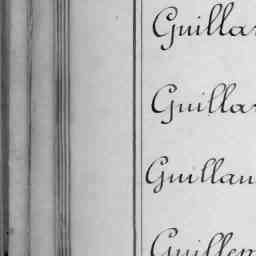 Guillar
Guillar
Guillau
Guillem